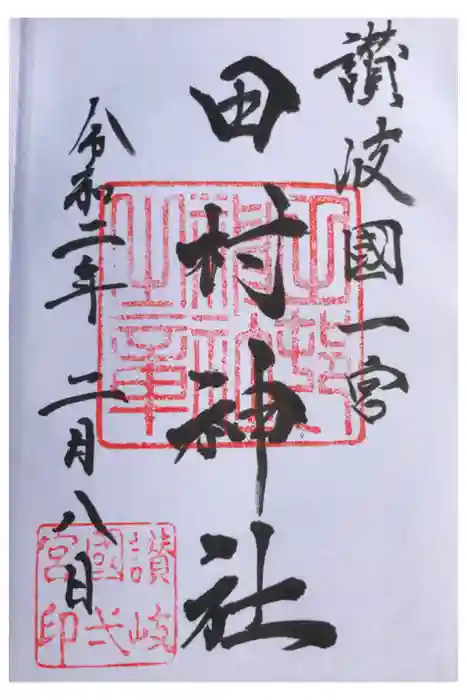 讃岐國一宮
田村神社
令和二年二月八日
之章
讃岐
國弌
宮印